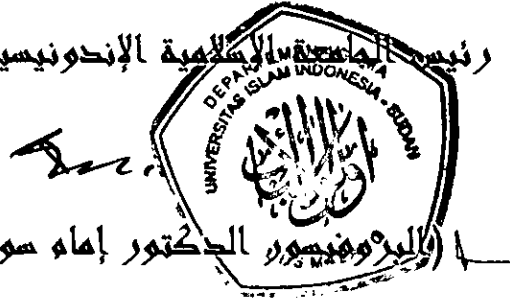 رئيس الجامعة الإسلامية الإندونيسي
UNIVERSITAS ISLAM INDONESIA - SUDAN
(البروفيسور الدكتور إمام سو